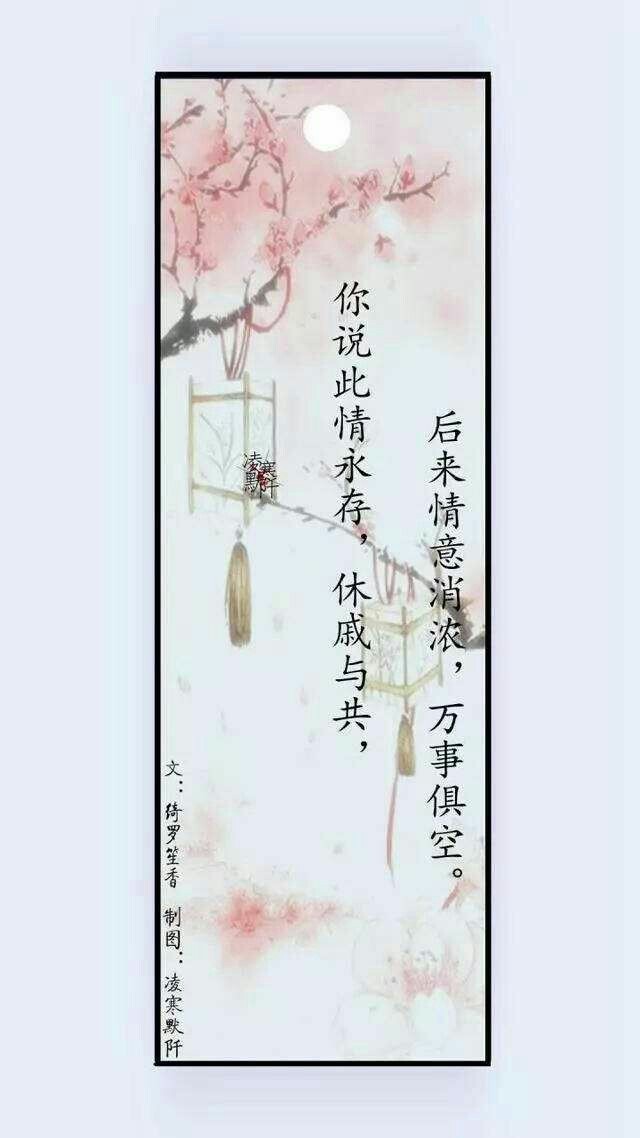 你说此情永存，休戚与共，
后来情意消浓，万事俱空。
文：绮罗笙香 制图：凌寒默阡
凌寒
默阡